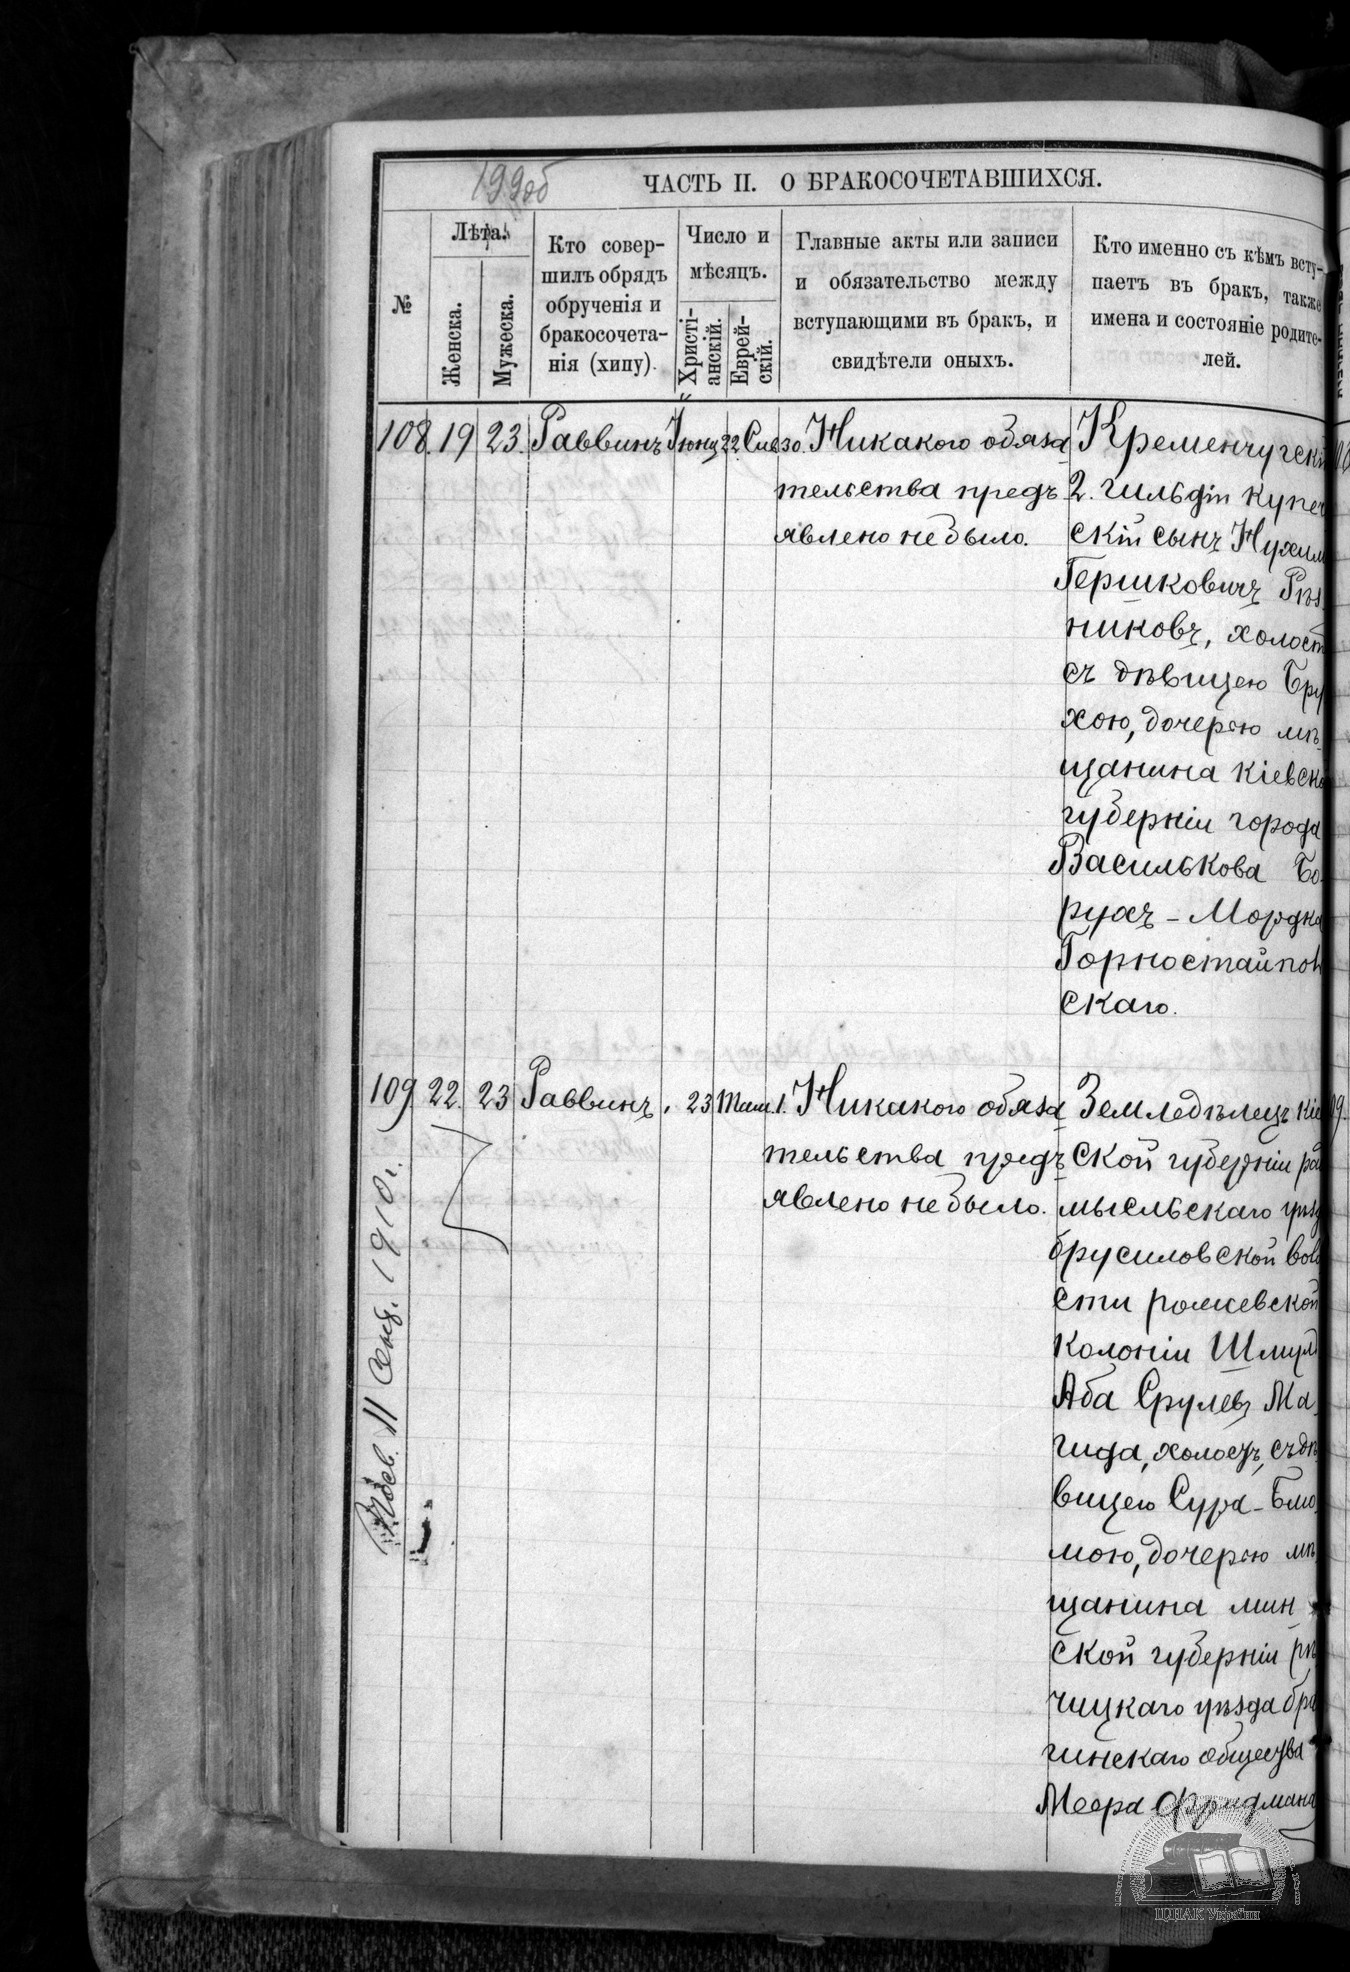 199об
ЧАСТЬ II. О БРАКОСОЧЕТАВШИХСЯ.
№
Лѣта.
Женска.
Мужеска.
Кто совер-
шилъ обрядъ
обрученія и
бракосочета-
нія (хипу).
Число и
мѣсяцъ.
Христі-
анскій.
Еврей-
скій.
Главные акты или записи
и обязательство между
вступающими въ бракъ, и
свидѣтели оныхъ.
Кто именно съ кѣмъ всту-
паетъ въ бракъ, также
имена и состояніе родите-
лей.
108. 19 23. Раввинъ 22 30. Никакого обяза
тельства предъ
явлено не было.
Кременчугскі
2. гильдіи купеч
скій сынъ Нухим
Гершковичъ Рѣз
никовъ, холост
съ дѣвицею Бру
хою, дочерью мѣ
щанина Кіевско
губерніи города
Василькова Бо
рухъ-Мордко
Горностайпол
скаго.
109 22. 23 Раввинъ. 23 Там. 1. Никакого обяза
тельства предъ
явлено не было.
Земледѣлецъ Кіе
ской губерніи ра
мысльскаго уѣз
брусиловской вол
сти рожевской
колоніи Шмул
Аба Срулевъ Ма
гида, холостъ, съ дѣ
вицею Сура-Блю
мою, дочерью мѣ
щанина мин
ской губерніи рѣ
чицкаго уѣзда бра
гинскаго общества
Меера Фридмана
11 Сент. 1910 г.
ЦДІАК України